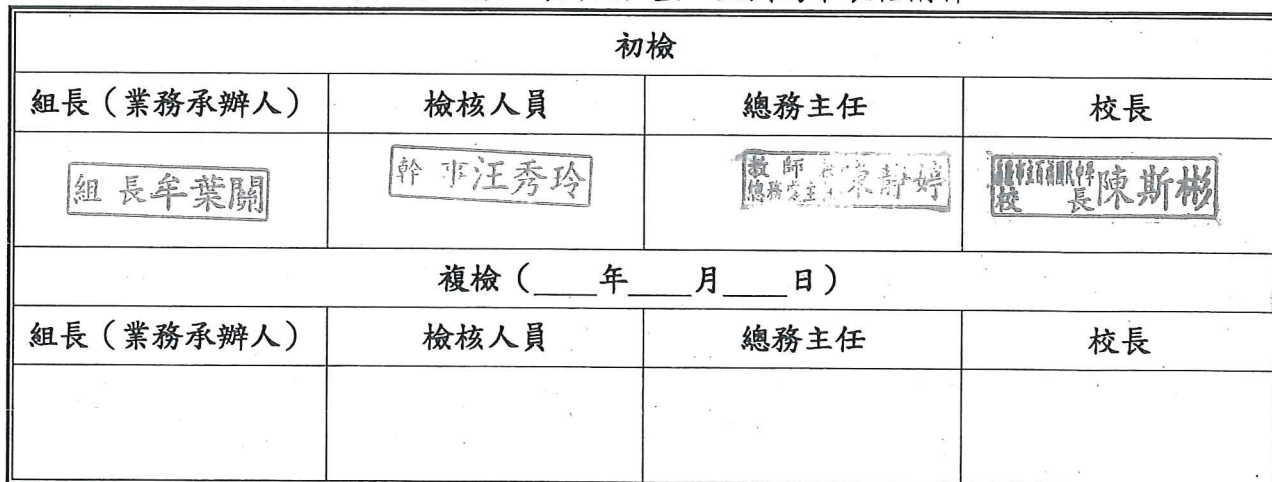 初檢
組長（業務承辦人） 檢核人員 總務主任 校長
組長牟葉關 幹事汪秀玲 教師 總務處主 靜婷 校長陳斯彬
複檢（____年____月____日）
組長（業務承辦人） 檢核人員 總務主任 校長